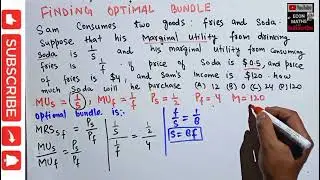 FINDING OPTIMAL BUNDLE
ECON MATHS
Sam Consumes two goods : fries and Soda.
Suppose that his Marginal Utility from drinking
soda is 1/S and his marginal utility from consuming
fries is 1/f. if price of Soda is $0.5, and price
of fries is $4, and Sam's Income is $120. how
much Soda will he purchase (A) 12 (B) 0 (C) 24 (D) 120
MUs = 1/S, MUf = 1/f Ps = 1/2 Pf = 4 M = 120
optimal bundle is:-
MRSsf = Ps/Pf
MUs/MUf = Ps/Pf
1/S / 1/f = 1/2 / 4
f/S = 1/8
S = 8f